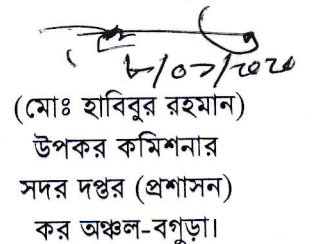 (মোঃ হাবিবুর রহমান)
উপকর কমিশনার
সদর দপ্তর (প্রশাসন)
কর অঞ্চল-বগুড়া।